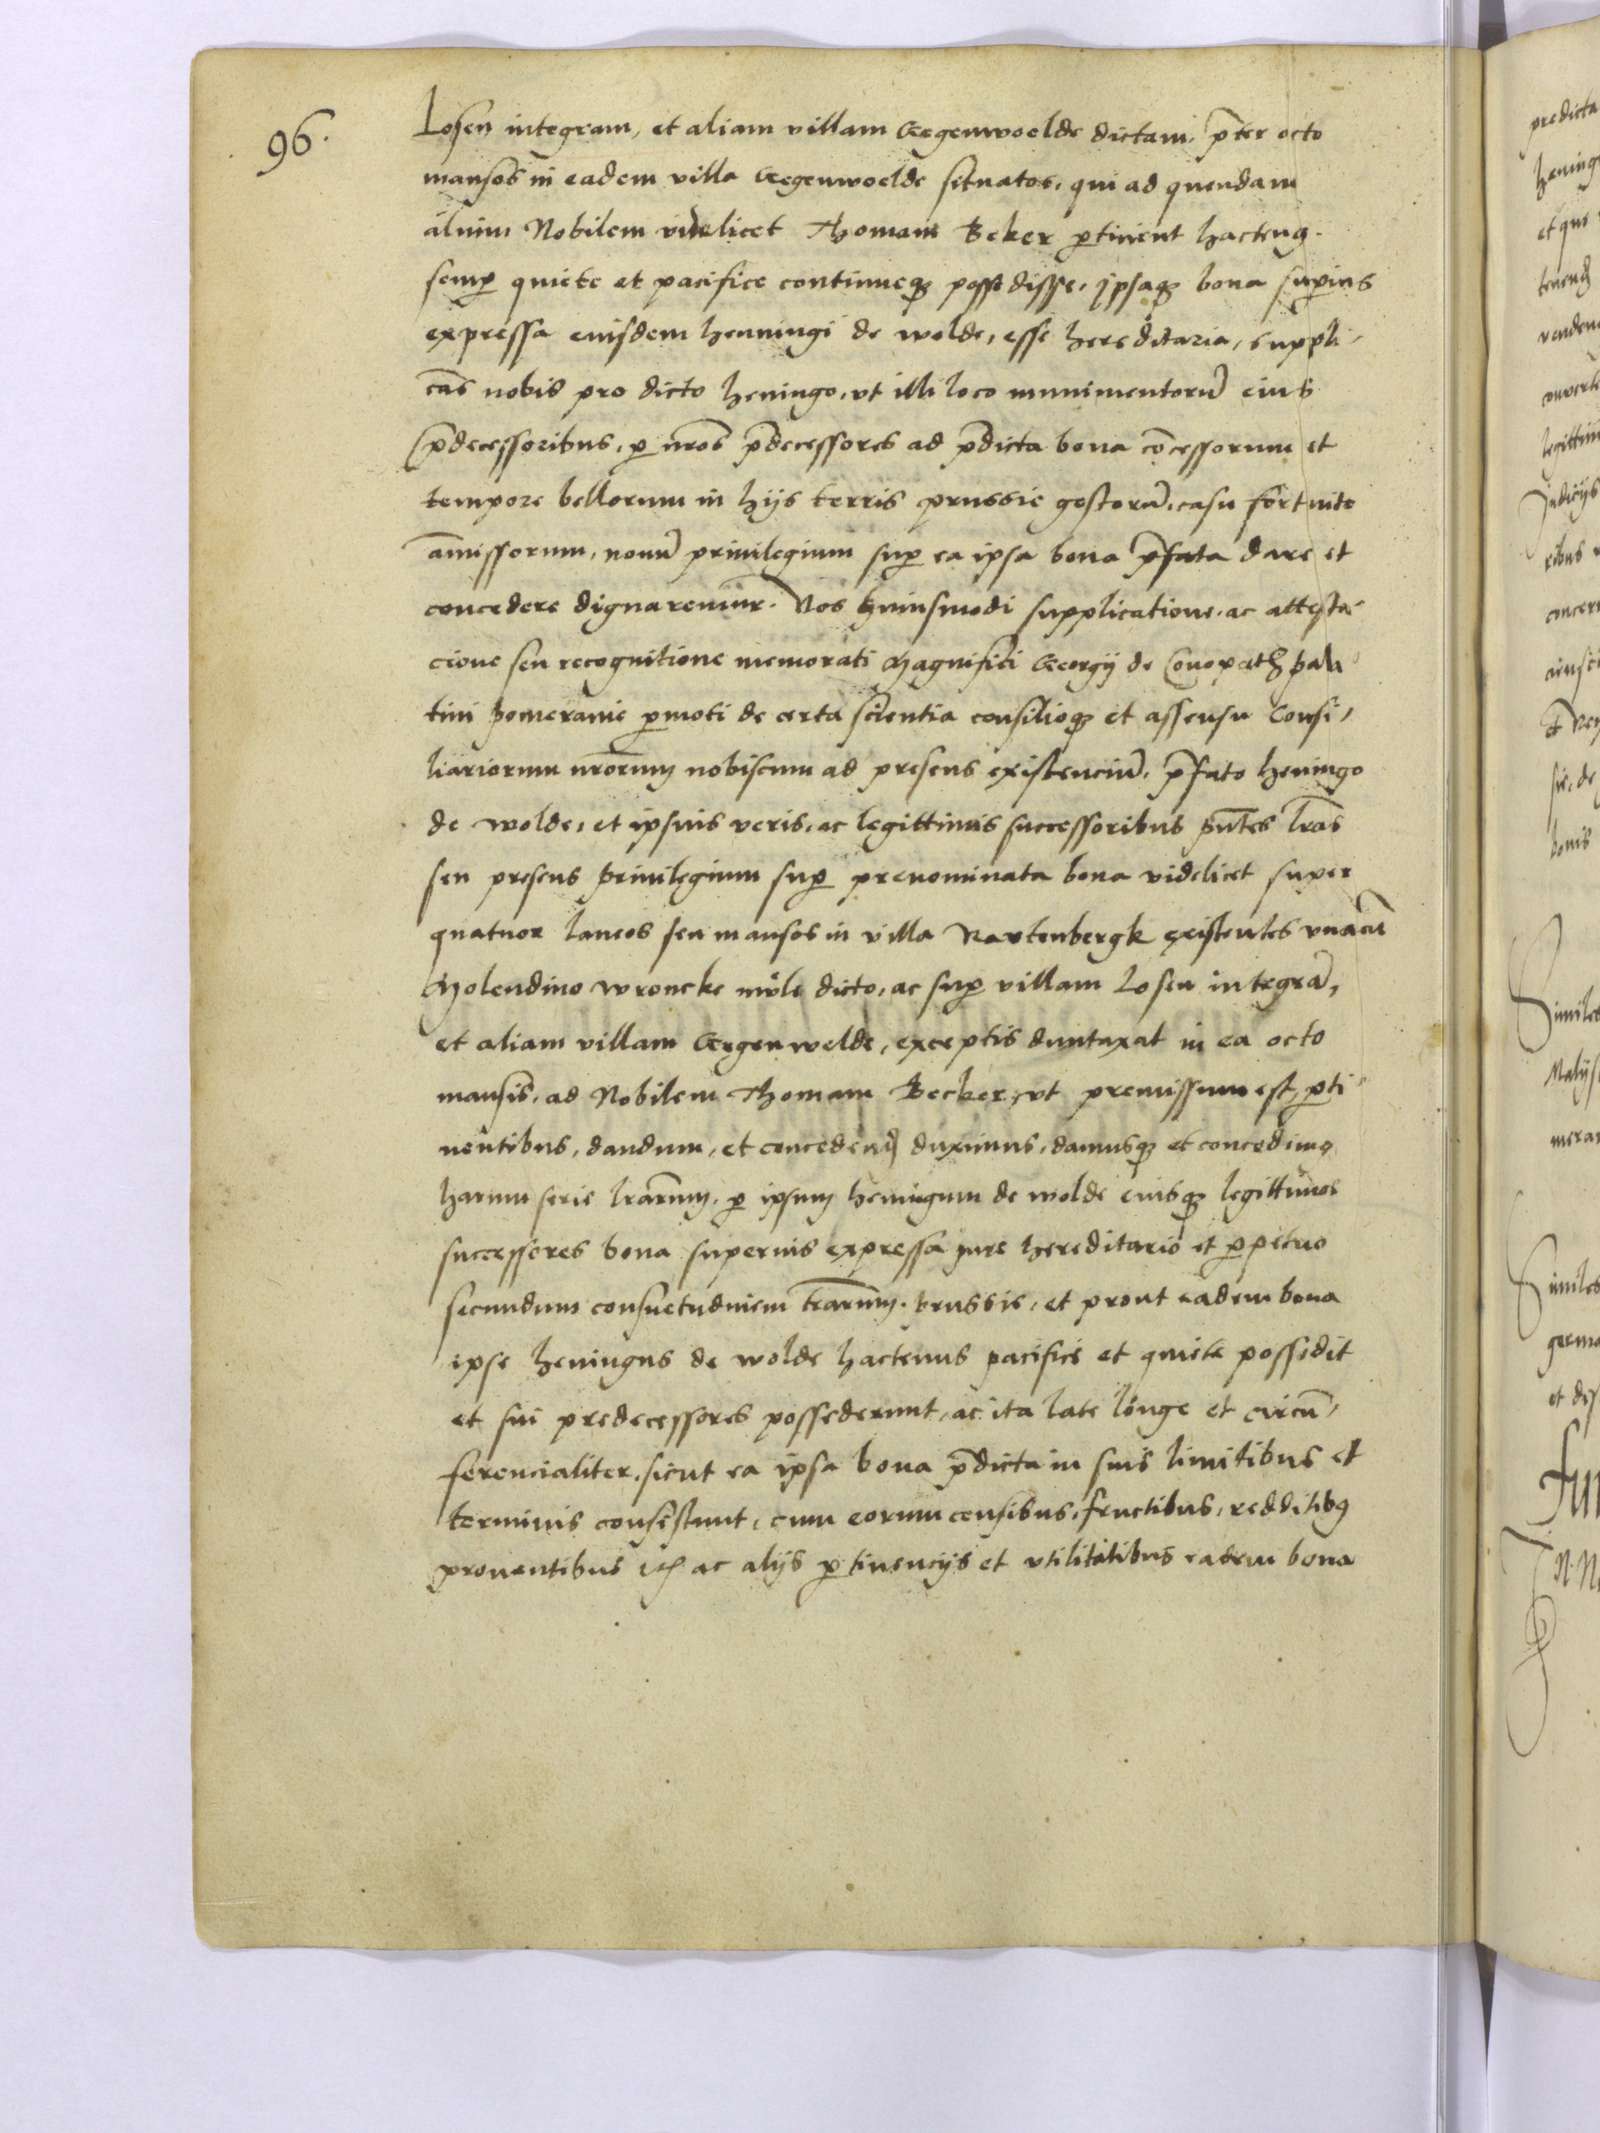 96.
Losen integram, et aliam villam Gegenwoelde dictam, p̄ter octo
mansos in eadem villa Gegenwoelde situatos, qui ad quendam
alium Nobilem videlicet Thomam Beker ꝑtinent hactenꝰ
semꝑ quiete et pacifice continueqꝫ possedisse, ipsaqꝫ bona suꝑius
expressa eiusdem henningi de wolde, esse hereditaria, suppli,
cās nobis pro dicto heningo, vt illi loco munimentorū eius
p̄decessoribus, ꝑ nr̄os p̄decessores ad p̄dicta bona cōcessorum et
tempore bellorum in hijs terris prussie gestorū, casu fortuito
amissorum, nouū priuilegium suꝑ ea ipsa bona p̄fata dare et
concedere dignaremur. Nos huiusmodi supplicatione, ac attesta-
cione seu recognitione memorati Magnifici Georgij de Conopath pala
tini pomeranie ꝑmoti de certa scientia consilioqꝫ et assensu Consi,
liariorum nr̄orum nobiscum ad presens existenciū, p̄fato heningo
de wolde, et ipsius veris, ac legittimis successoribus pn̄tes lr̄as
seu presens priuilegium suꝑ prenominata bona videlicet super
quatuor laneos seu mansos in villa Rautenbergk existentes vnacū
Molendino wroncke möle dicto, ac suꝑ villam Losen integrā,
et aliam villam Gegenwelde, exceptis duntaxat in ea octo
mansis, ad Nobilem Thomam Becker, vt premissum est, ꝑti
nentibus, dandum, et concedend duximus, damusqꝫ et concedimꝰ
harum serie lr̄arum, ꝑ ipsum heningum de wolde eiusqꝫ legittimos
successores bona superius expressa jure hereditario et ꝑpetuo
secundum consuetudinem terrarum prussie, et prout eadem bona
ipse heningus de wolde hactenus pacifice et quiete possedit
et sui predecessores possederunt, ac ita late longe et circū,
ferencialiter, sicut ea ipsa bona p̄dicta in suis limitibus et
terminis consistunt, cum eorum censibus, fructibus, redditibꝰ
prouentibus ac alijs ꝑtinencijs et vtilitatibus eadem bona